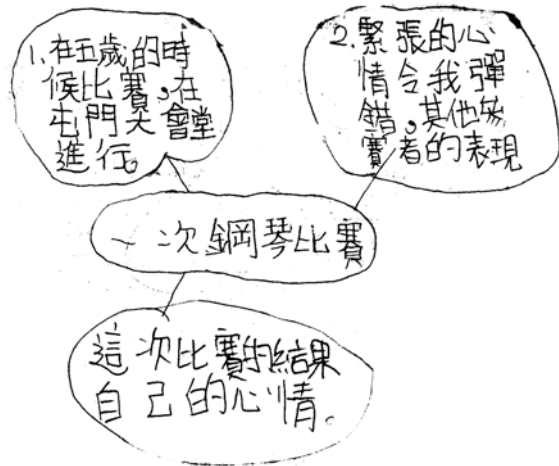 1. 在五歲的時
候比賽,在
屯門大會堂
進行。
2. 緊張的心
情令我彈
錯,其他參
賽者的表現
一次鋼琴比賽
這次比賽的結果
自己的心情。